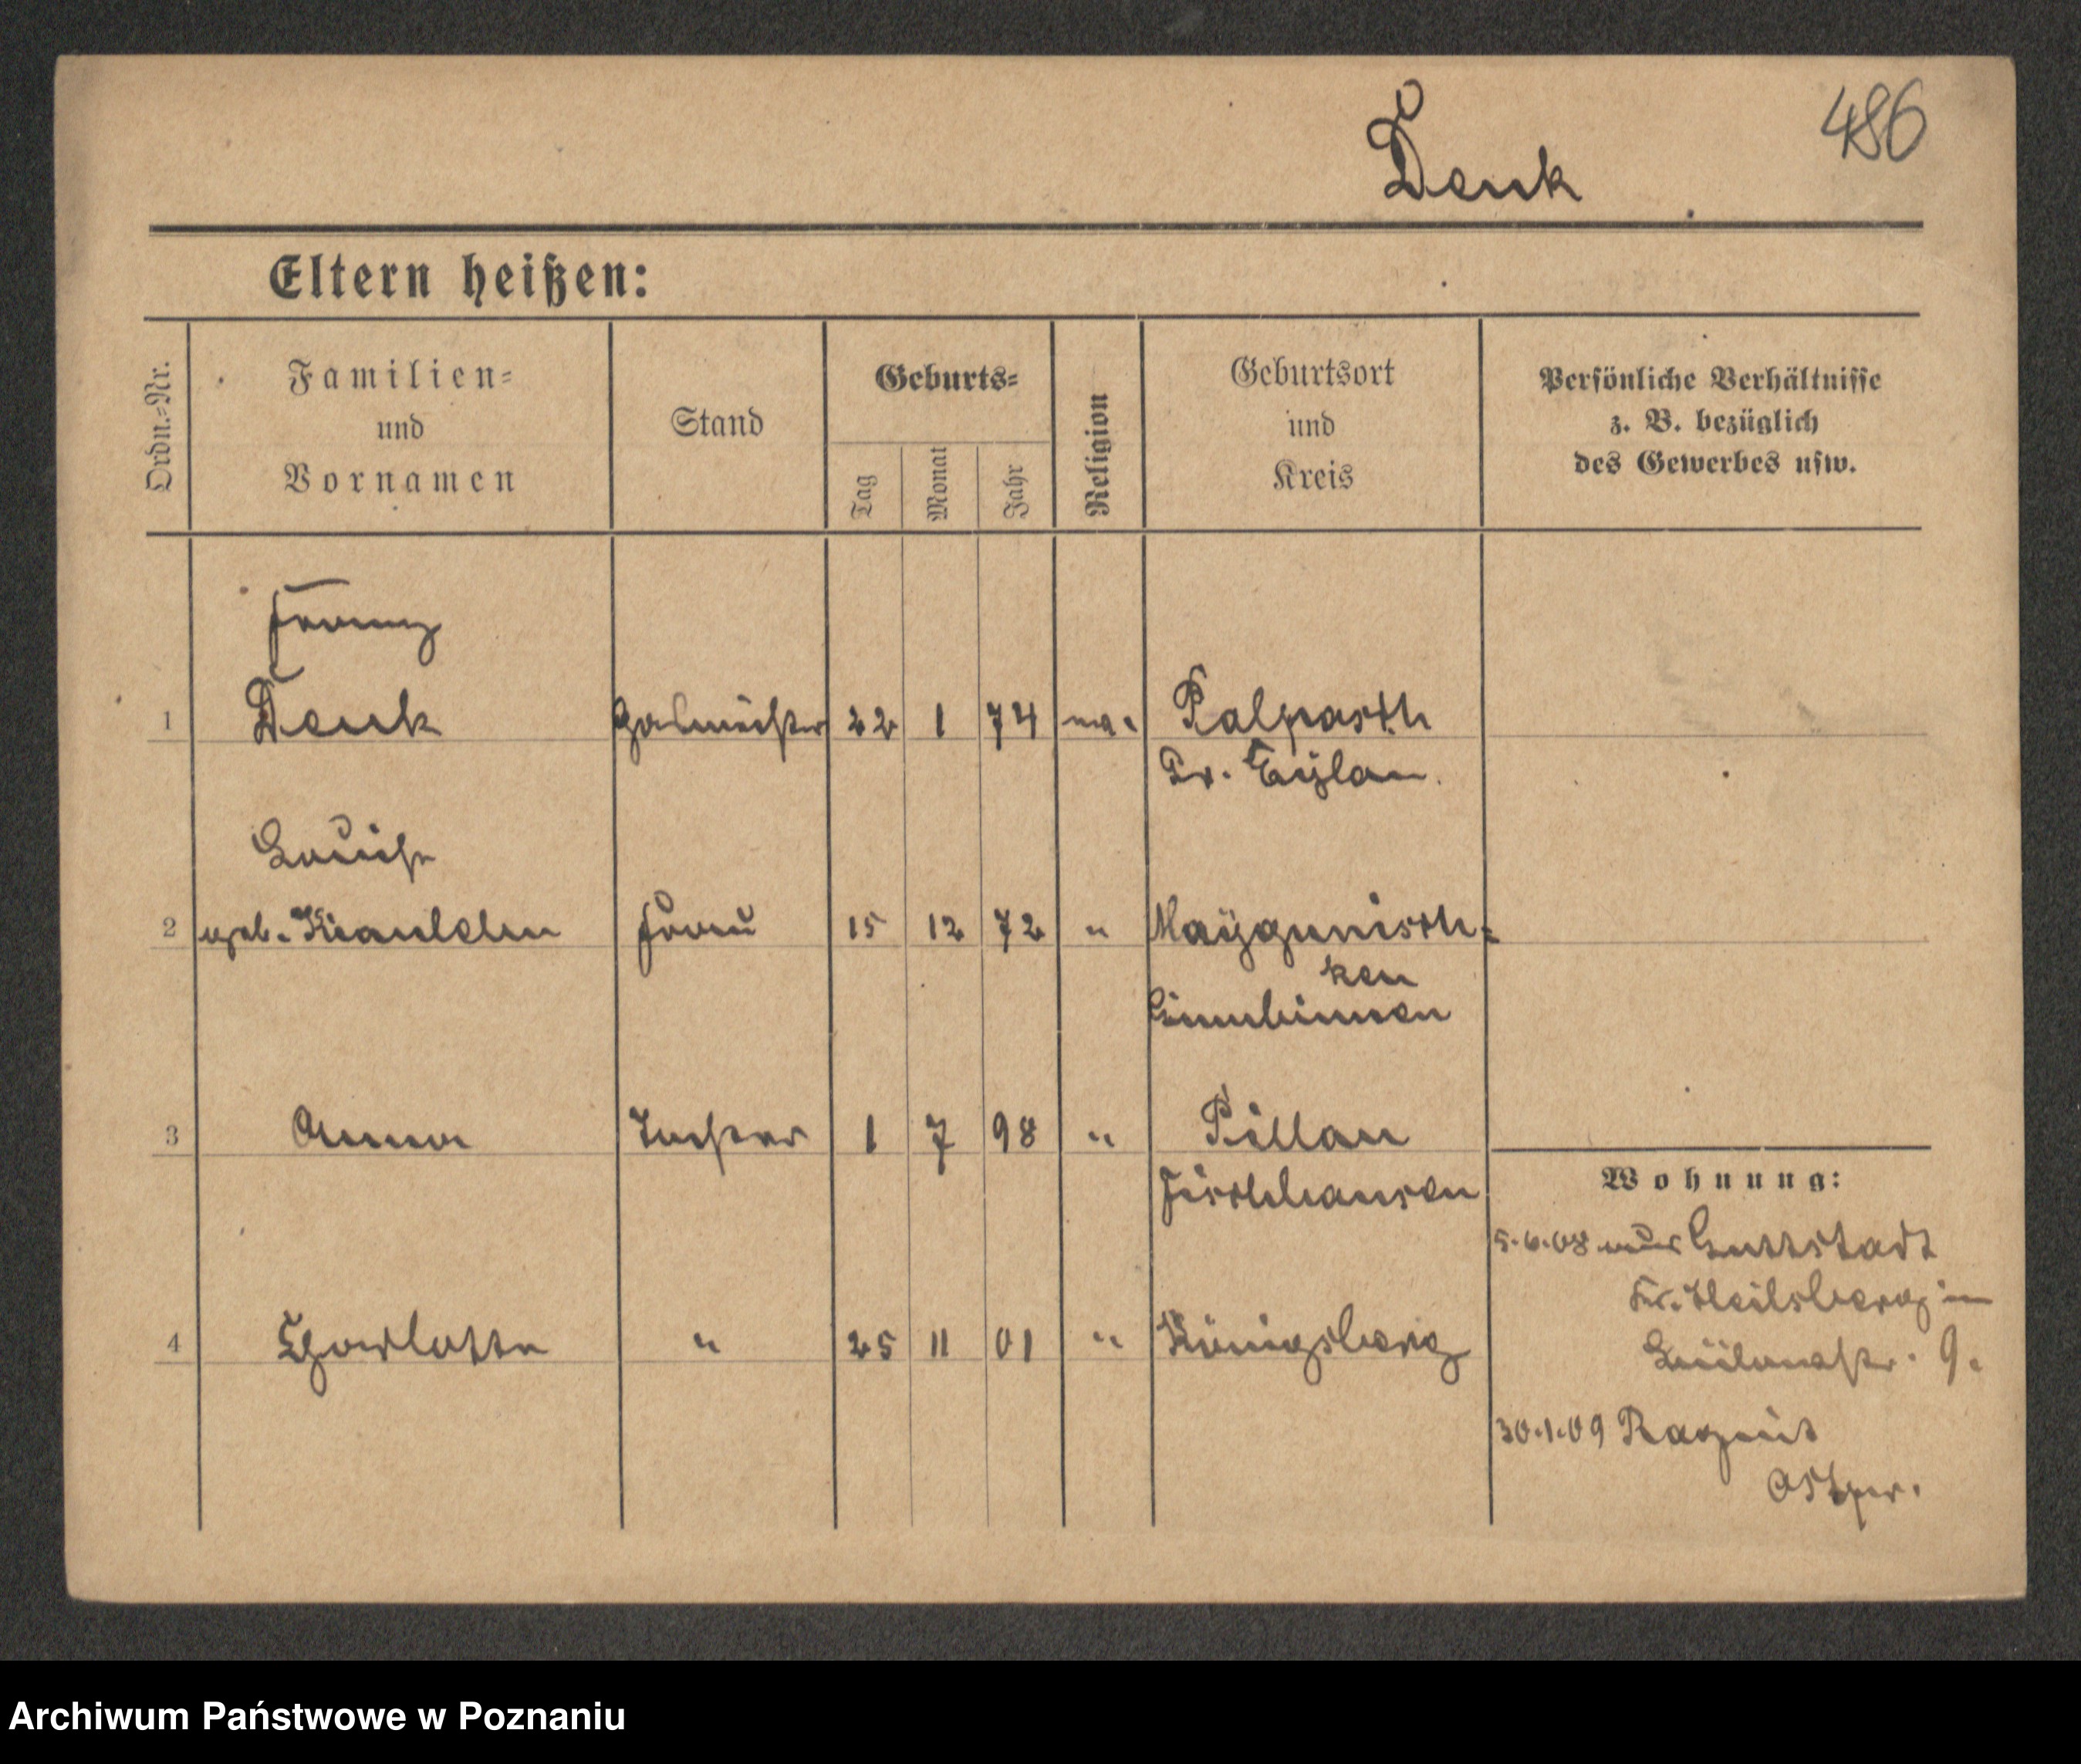 486
Denk
Eltern heißen:
Ordn.-Nr.
Familien-
und
Vornamen
Stand
Geburts-
Tag
Monat
Jahr
Religion
Geburtsort
und
Kreis
Persönliche Verhältnisse
z. B. bezüglich
des Gewerbes usw.
Franz
1 Denk Gasmeister 22 1 74 Palpasch
Pr. Eylau.
Louise
2 geb. Frau 15 12 72 " Maygunisch-
ken
Gumbinnen
3 Anna Tochter 1 7 98 " Pillau
Fischhausen
Wohnung:
5.6.08 aus Guttstadt
Kr. Heilsberg in
9.
4 Charlotte " 25 11 01 " Königsberg
30.1.09 Ragnit
Ostpr.
Archiwum Państwowe w Poznaniu